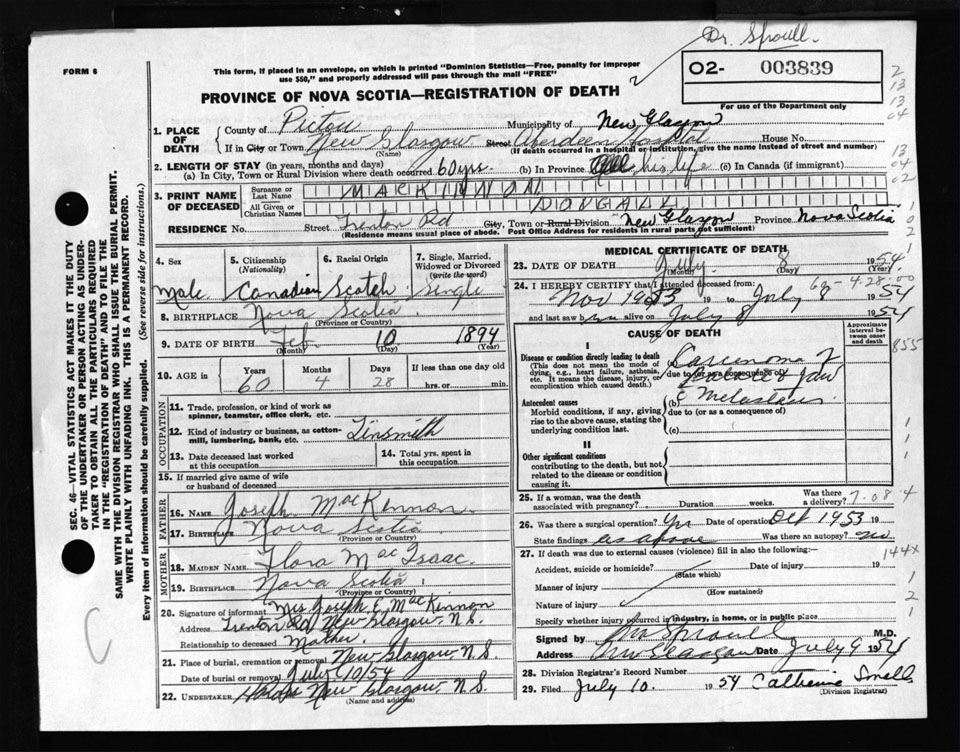 Dr. Sproull.
FORM 6
This form, if placed in an envelope, on which is printed "Dominion Statistics—Free, penalty for improper
use $50," and properly addressed will pass through the mail "FREE"
O2- 003839
For use of the Department only
PROVINCE OF NOVA SCOTIA—REGISTRATION OF DEATH
1. PLACE OF DEATH
County of Pictou Municipality of New Glasgow
If in City or Town New Glasgow Street Aberdeen Hospital House No.
(Name) (If death occurred in a hospital or institution, give the name instead of street and number)
2. LENGTH OF STAY (in years, months and days)
(a) In City, Town or Rural Division where death occurred 60 yrs. (b) In Province All his life (c) In Canada (if immigrant)
3. PRINT NAME OF DECEASED
Surname or Last Name MACKINNON
All Given or Christian Names DOUGALL
RESIDENCE No. Street Trenton Rd City, Town or Rural Division New Glasgow Province Nova Scotia
(Residence means usual place of abode. Post Office Address for residents in rural parts not sufficient)
4. Sex Male
5. Citizenship (Nationality) Canadian
6. Racial Origin Scotch
7. Single, Married, Widowed or Divorced (write the word) Single
8. BIRTHPLACE Nova Scotia
(Province or Country)
9. DATE OF BIRTH Feb 10 1894
(Month) (Day) (Year)
10. AGE in Years 60 Months 4 Days 28 If less than one day old hrs. or min.
OCCUPATION
11. Trade, profession, or kind of work as spinner, teamster, office clerk, etc.
12. Kind of industry or business, as cotton-mill, lumbering, bank, etc. Tinsmith
13. Date deceased last worked at this occupation
14. Total yrs. spent in this occupation
15. If married give name of wife or husband of deceased
FATHER
16. NAME Joseph MacKinnon
17. BIRTHPLACE Nova Scotia
(Province or Country)
MOTHER
18. MAIDEN NAME Flora MacIsaac
19. BIRTHPLACE Nova Scotia
(Province or Country)
20. Signature of informant Mrs Joseph E. MacKinnon
Address Trenton Rd New Glasgow N.S.
Relationship to deceased Mother.
21. Place of burial, cremation or removal New Glasgow N.S.
Date of burial or removal July 10/54
22. UNDERTAKER New Glasgow, N.S.
(Name and address)
MEDICAL CERTIFICATE OF DEATH
23. DATE OF DEATH July 8 1954
(Month) (Day) (Year)
24. I HEREBY CERTIFY that I attended deceased from:
Nov 1953 19 to July 8 1954
and last saw him alive on July 8 1954
CAUSE OF DEATH
Approximate interval between onset and death
I
Disease or condition directly leading to death
(This does not mean the mode of dying, e.g., heart failure, asthenia, etc. It means the disease, injury, or complication which caused death.)
Carcinoma of
due to (or as a consequence of)
jaw
Antecedent causes
Morbid conditions, if any, giving rise to the above cause, stating the underlying condition last.
(b) c Metastasis
due to (or as a consequence of)
(c)
II
Other significant conditions
contributing to the death, but not related to the disease or condition causing it.
25. If a woman, was the death associated with pregnancy? Duration weeks. Was there a delivery?
26. Was there a surgical operation? Yes Date of operation Oct 1953 19
State findings as above Was there an autopsy? no
27. If death was due to external causes (violence) fill in also the following:—
Accident, suicide or homicide? Date of injury 19
(State which)
Manner of injury
(How sustained)
Nature of injury
Specify whether injury occurred in industry, in home, or in public place
Signed by Sproull M.D.
Address New Glasgow Date July 9 1954
28. Division Registrar's Record Number
29. Filed July 10. 1954 Catherine Small
(Division Registrar)
SEC. 46—VITAL STATISTICS ACT MAKES IT THE DUTY
OF THE UNDERTAKER OR PERSON ACTING AS UNDER-
TAKER TO OBTAIN ALL THE PARTICULARS REQUIRED
IN THE "REGISTRATION OF DEATH" AND TO FILE THE
SAME WITH THE DIVISION REGISTRAR WHO SHALL ISSUE THE BURIAL PERMIT.
WRITE PLAINLY WITH UNFADING INK. THIS IS A PERMANENT RECORD.
Every item of information should be carefully supplied. (See reverse side for instructions.)
C
2
13
13
04
13
04
02
1
0
2
1
855
144x